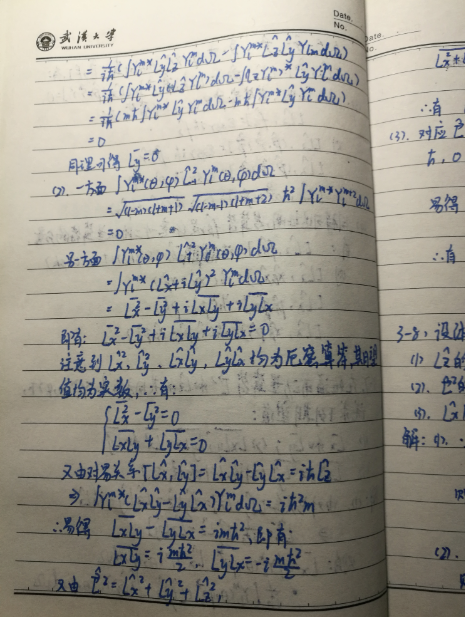 武汉大学
WUHAN UNIVERSITY
Date.
No.
= 1/iħ (∫Yₗᵐ* L̂y L̂z Yₗᵐ dΩ - ∫Yₗᵐ* L̂z L̂y Yₗᵐ dΩ)
= 1/iħ (∫Yₗᵐ* L̂y L̂z Yₗᵐ dΩ - ∫(L̂z Yₗᵐ)* L̂y Yₗᵐ dΩ)
= 1/iħ (mħ ∫Yₗᵐ* L̂y Yₗᵐ dΩ - mħ ∫Yₗᵐ* L̂y Yₗᵐ dΩ)
= 0
同理可得 L̄y = 0
(2). 一方面 ∫Yₗᵐ*(θ,φ) L̂₊² Yₗᵐ(θ,φ) dΩ
= √(l-m)(l+m+1) √(l-m-1)(l+m+2) ħ² ∫Yₗᵐ* Yₗᵐ⁺² dΩ
= 0
另一方面 ∫Yₗᵐ*(θ,φ) L̂₊² Yₗᵐ(θ,φ) dΩ
= ∫Yₗᵐ* (L̂x + iL̂y)² Yₗᵐ dΩ
= L̄x² - L̄y² + i L̄xLy + i L̄yLx
即有: L̄x² - L̄y² + i L̄xLy + i L̄yLx = 0
注意到 L̂x², L̂y², L̂xL̂y, L̂yL̂x 均为厄密算符, 其
值均为实数, ∴有:
{ L̄x² - L̄y² = 0
L̄xLy + L̄yLx = 0
又由对易关系 [L̂x, L̂y] = L̂xL̂y - L̂yL̂x = iħL̂z
⇒ ∫Yₗᵐ* (L̂xL̂y - L̂yL̂x) Yₗᵐ dΩ = iħ²m
∴易得 L̄xLy - L̄yLx = imħ² 即有
L̄xLy = i mħ²/2, L̄yLx = -i mħ²/2
又由 L̂² = L̂x² + L̂y² + L̂z²,
∴有
(3). 对应
ħ, 0
易得
∴有
3-8, 设体
(1) L̂z的
(2). L̂²的
(3). L̂x
解: (1).
(2).